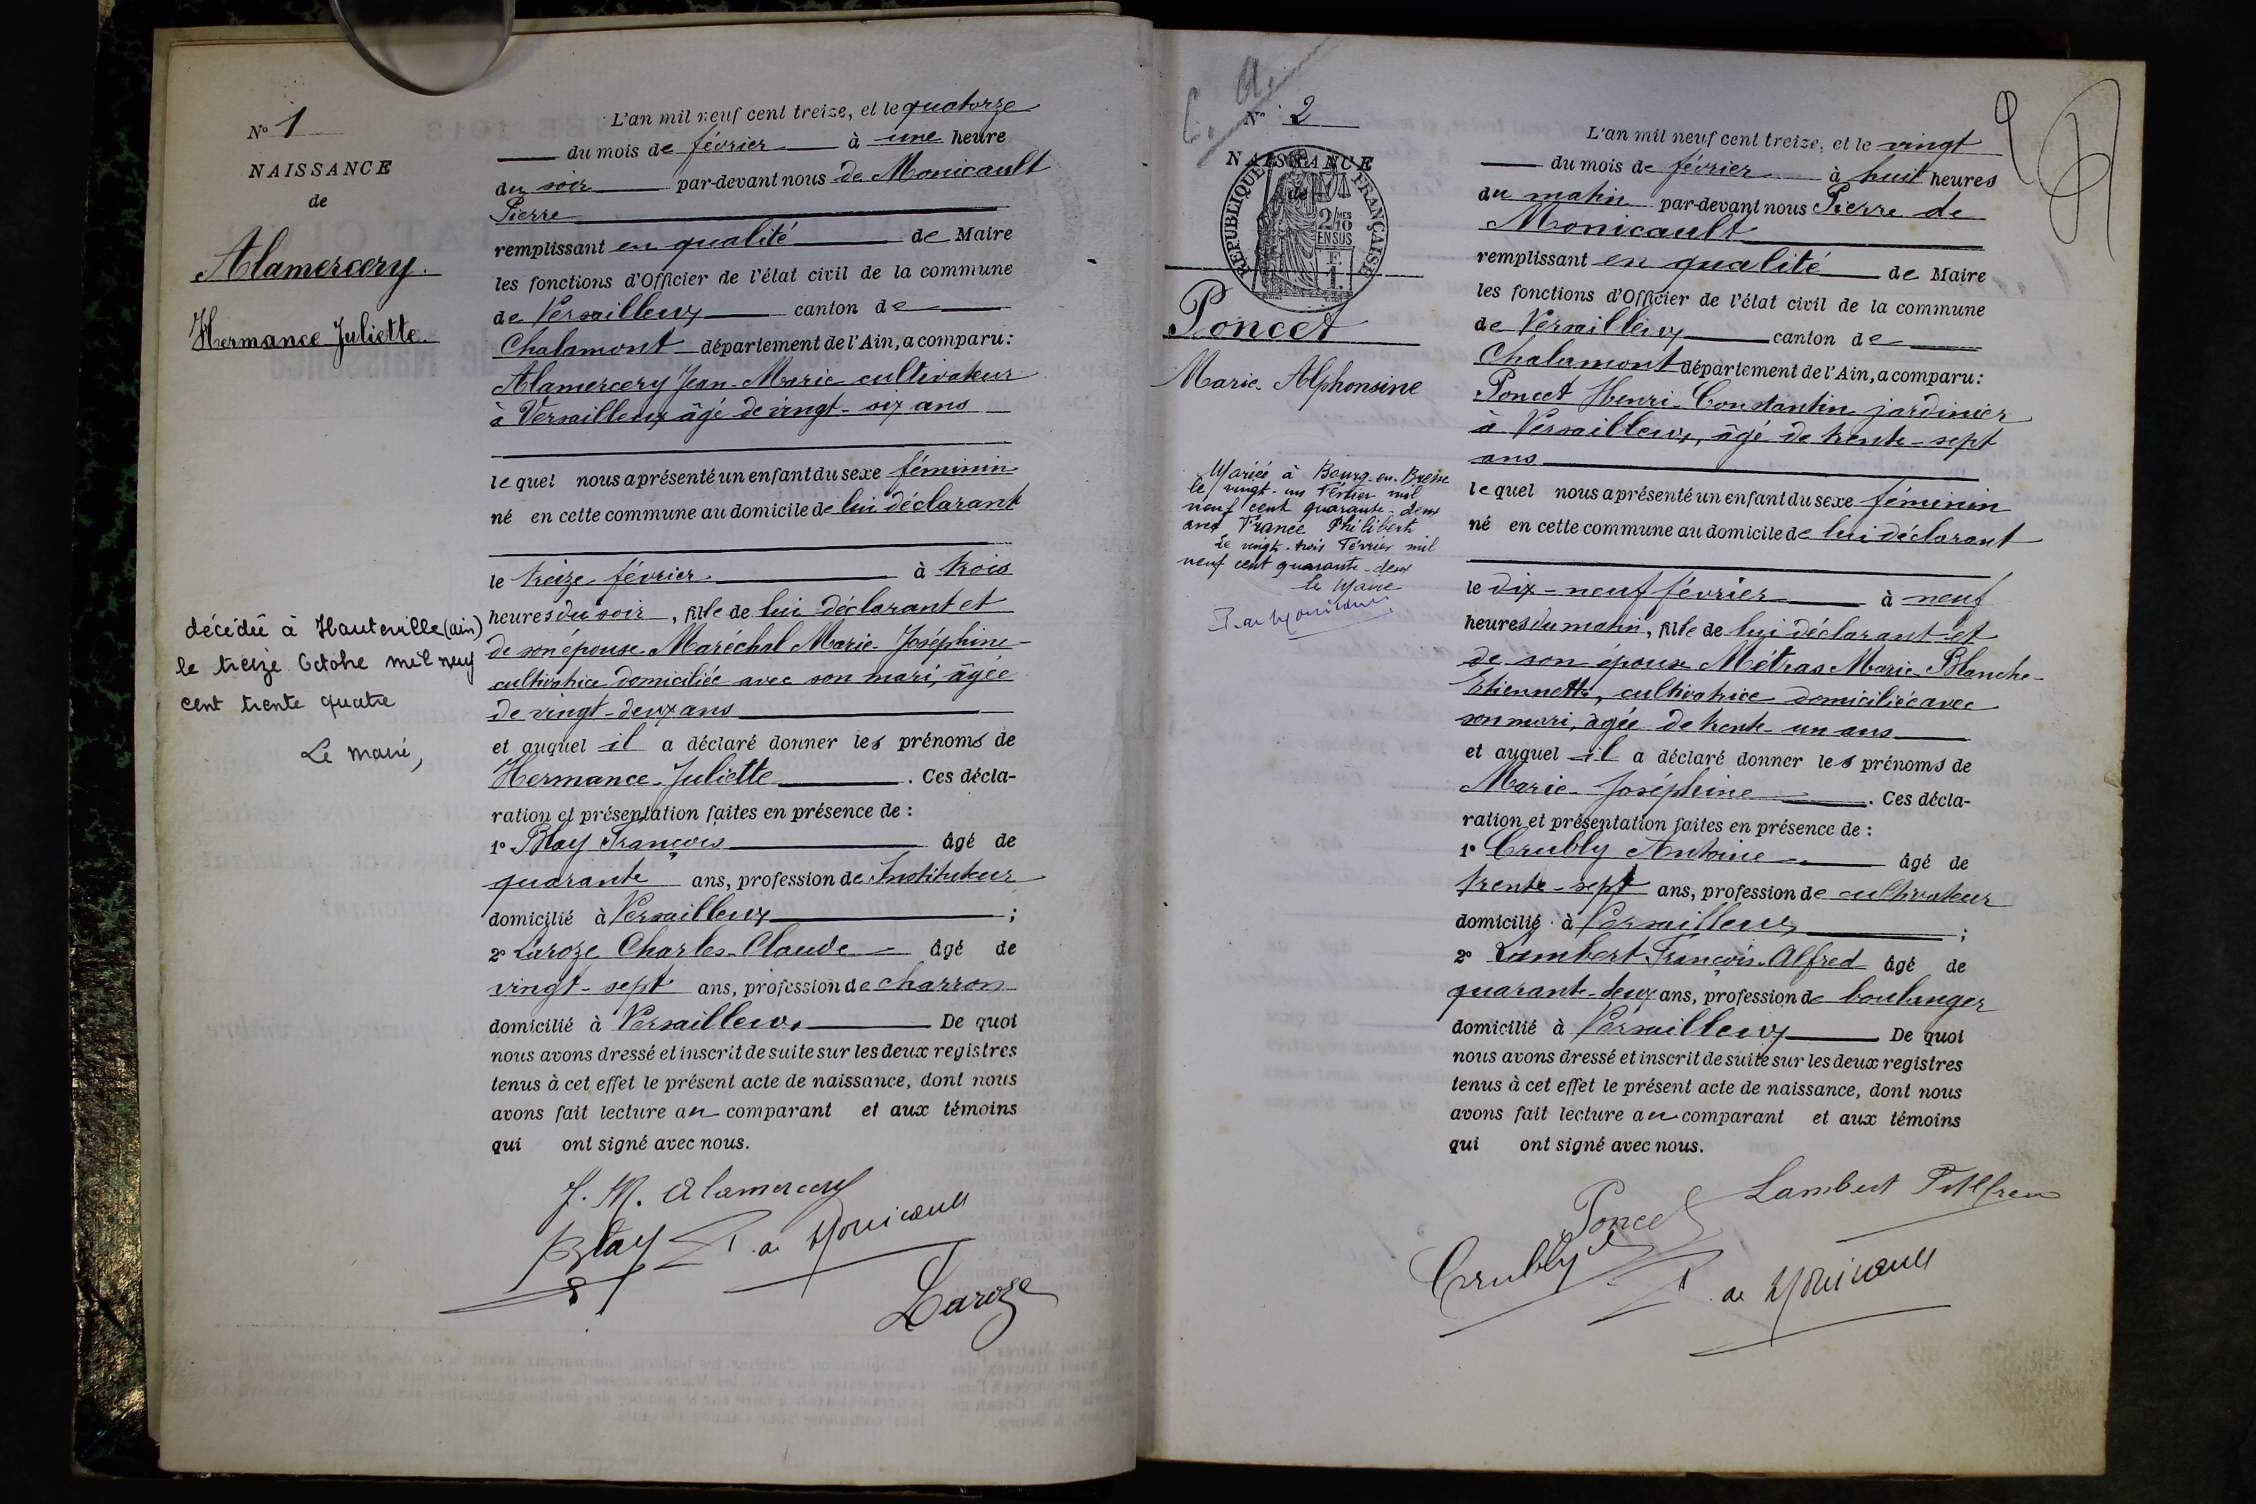 N° 1
NAISSANCE
de
Alamercery.
Hermance Juliette.
décédée à Hauteville (ain)
le treize Octobre mil neuf
cent trente quatre
Le maire,
L'an mil neuf cent treize, et le quatorze
du mois de février à une heure
du soir par-devant nous de Monicault
Pierre
remplissant en qualité de Maire
les fonctions d'Officier de l'état civil de la commune
de Versailleux canton de
Chalamont département de l'Ain, a comparu:
Alamercery Jean-Marie cultivateur
à Versailleux âgé de vingt-six ans
lequel nous a présenté un enfant du sexe féminin
né en cette commune au domicile de lui déclarant
le treize février à trois
heures du soir, fille de lui déclarant et
de son épouse Maréchal Marie-Joséphine
cultivatrice domiciliée avec son mari, âgée
de vingt-deux ans
et auquel il a déclaré donner les prénoms de
Hermance-Juliette. Ces décla-
ration et présentation faites en présence de:
1° Blay François âgé de
quarante ans, profession de Instituteur
domicilié à Versailleux;
2° Laroze Charles-Claude âgé de
vingt-sept ans, profession de charron
domicilié à Versailleux De quoi
nous avons dressé et inscrit de suite sur les deux registres
tenus à cet effet le présent acte de naissance, dont nous
avons fait lecture au comparant et aux témoins
qui ont signé avec nous.
J. M. Alamercery
Blay P. de Monicault
Laroze
N° 2
NAISSANCE
de
RÉPUBLIQUE FRANÇAISE
2/10MES
EN SUS
E
1.
Poncet
Marie Alphonsine
Mariée à Bourg-en-Bresse
le vingt-un Février mil
neuf cent quarante-deux
avec France Philibert
Le vingt-trois Février mil
neuf cent quarante-deux
Le Maire
P. de Monicault
2
L'an mil neuf cent treize, et le vingt
du mois de février à huit heures
du matin par-devant nous Pierre de
Monicault
remplissant en qualité de Maire
les fonctions d'Officier de l'état civil de la commune
de Versailleux canton de
Chalamont département de l'Ain, a comparu:
Poncet Henri-Constantin jardinier
à Versailleux, âgé de trente-sept
ans
lequel nous a présenté un enfant du sexe féminin
né en cette commune au domicile de lui déclarant
le dix-neuf février à neuf
heures du matin, fille de lui déclarant et
de son épouse Métras Marie-Blanche-
Etiennette, cultivatrice domiciliée avec
son mari, âgée de trente-un ans
et auquel il a déclaré donner les prénoms de
Marie-Joséphine. Ces décla-
ration et présentation faites en présence de:
1° Crubly Antoine âgé de
trente-sept ans, profession de cultivateur
domicilié à Versailleux;
2° Lambert François-Alfred âgé de
quarante-deux ans, profession de boulanger
domicilié à Versailleux De quoi
nous avons dressé et inscrit de suite sur les deux registres
tenus à cet effet le présent acte de naissance, dont nous
avons fait lecture au comparant et aux témoins
qui ont signé avec nous.
Poncet Lambert
Crubly P. de Monicault